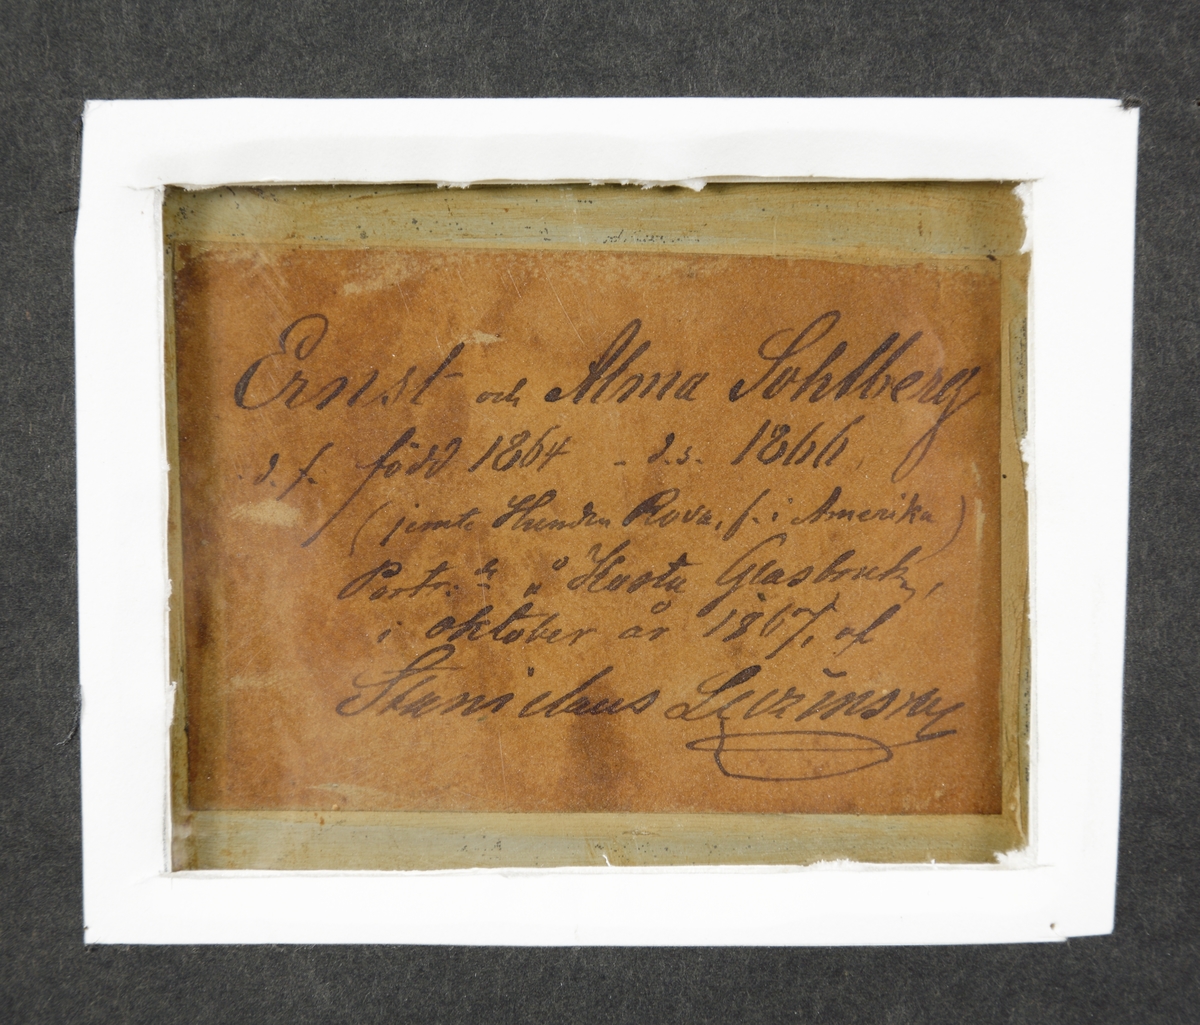 Ernst och Alma Sohlberg
d. f. född 1864 - d. s. 1866
(jemte Hunden Rova, f. i Amerika)
Portr. å Glasbruk,
i oktober år 1867, af
Stanislaus